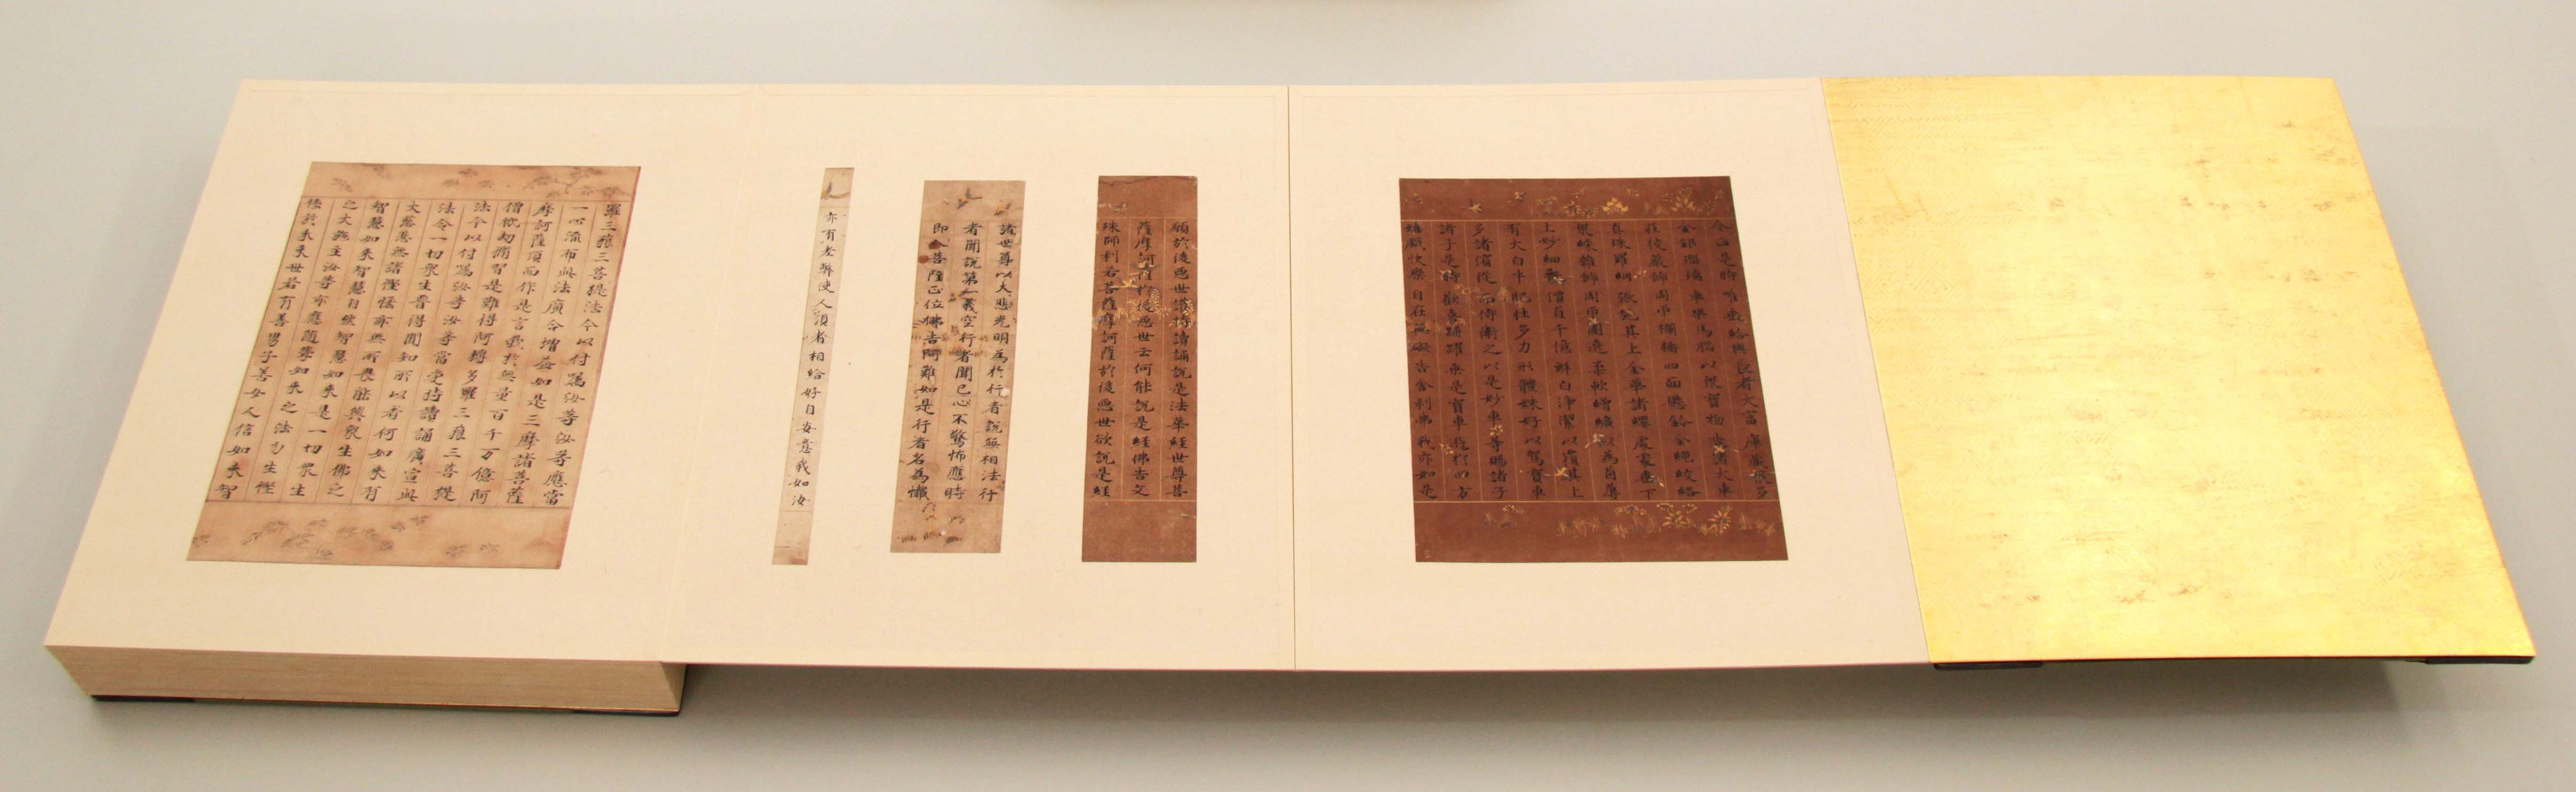 今正是時唯垂給與長者大富庫藏衆多
金銀瑠璃車𤦲馬腦以衆寶物造諸大車
莊挍嚴飾周帀欄楯四面懸鈴金繩絞絡
真珠羅網張施其上金華諸纓處處垂下
衆綵雜飾周帀圍遶柔軟繒纊以為茵蓐
上妙細㲲價直千億鮮白淨潔以覆其上
有大白牛肥壯多力形體姝好以駕寶車
多諸儐從而侍衛之以是妙車等賜諸子
諸子是時歡喜踊躍乘是寶車遊於四方
嬉戲快樂自在無礙告舍利弗我亦如是
願於後惡世護持讀誦說是法華經世尊菩
薩摩訶薩於後惡世云何能說是經佛告文
殊師利若菩薩摩訶薩於後惡世欲說是經
諸世尊以大悲光明為於行者說無相法行
者聞說第一義空行者聞已心不驚怖應時
即入菩薩正位佛告阿難如是行者名為懺
亦有老弊使人須者相給好自安意我如汝
羅三藐三菩提法今以付囑汝等汝等應當
一心流布此法廣令增益如是三摩諸菩薩
摩訶薩頂而作是言我於無量百千万億阿
僧祇劫修習是難得阿耨多羅三藐三菩提
法今以付囑汝等汝等當受持讀誦廣宣此
法令一切衆生普得聞知所以者何如來有
大慈悲無諸慳悋亦無所畏能與衆生佛之
智慧如來智慧自然智慧如來是一切衆生
之大施主汝等亦應隨學如來之法勿生慳
悋於未來世若有善男子善女人信如來智